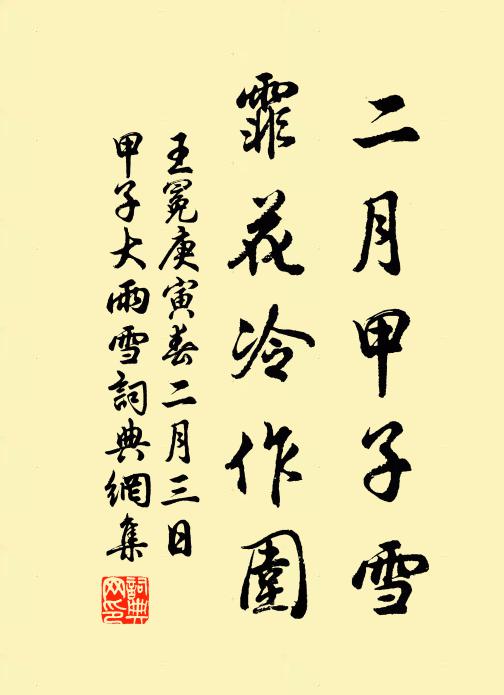 二月甲子雪
霏花冷作團
王冕庚寅春二月三日
甲子大雨雪詞典網集
詞典網印